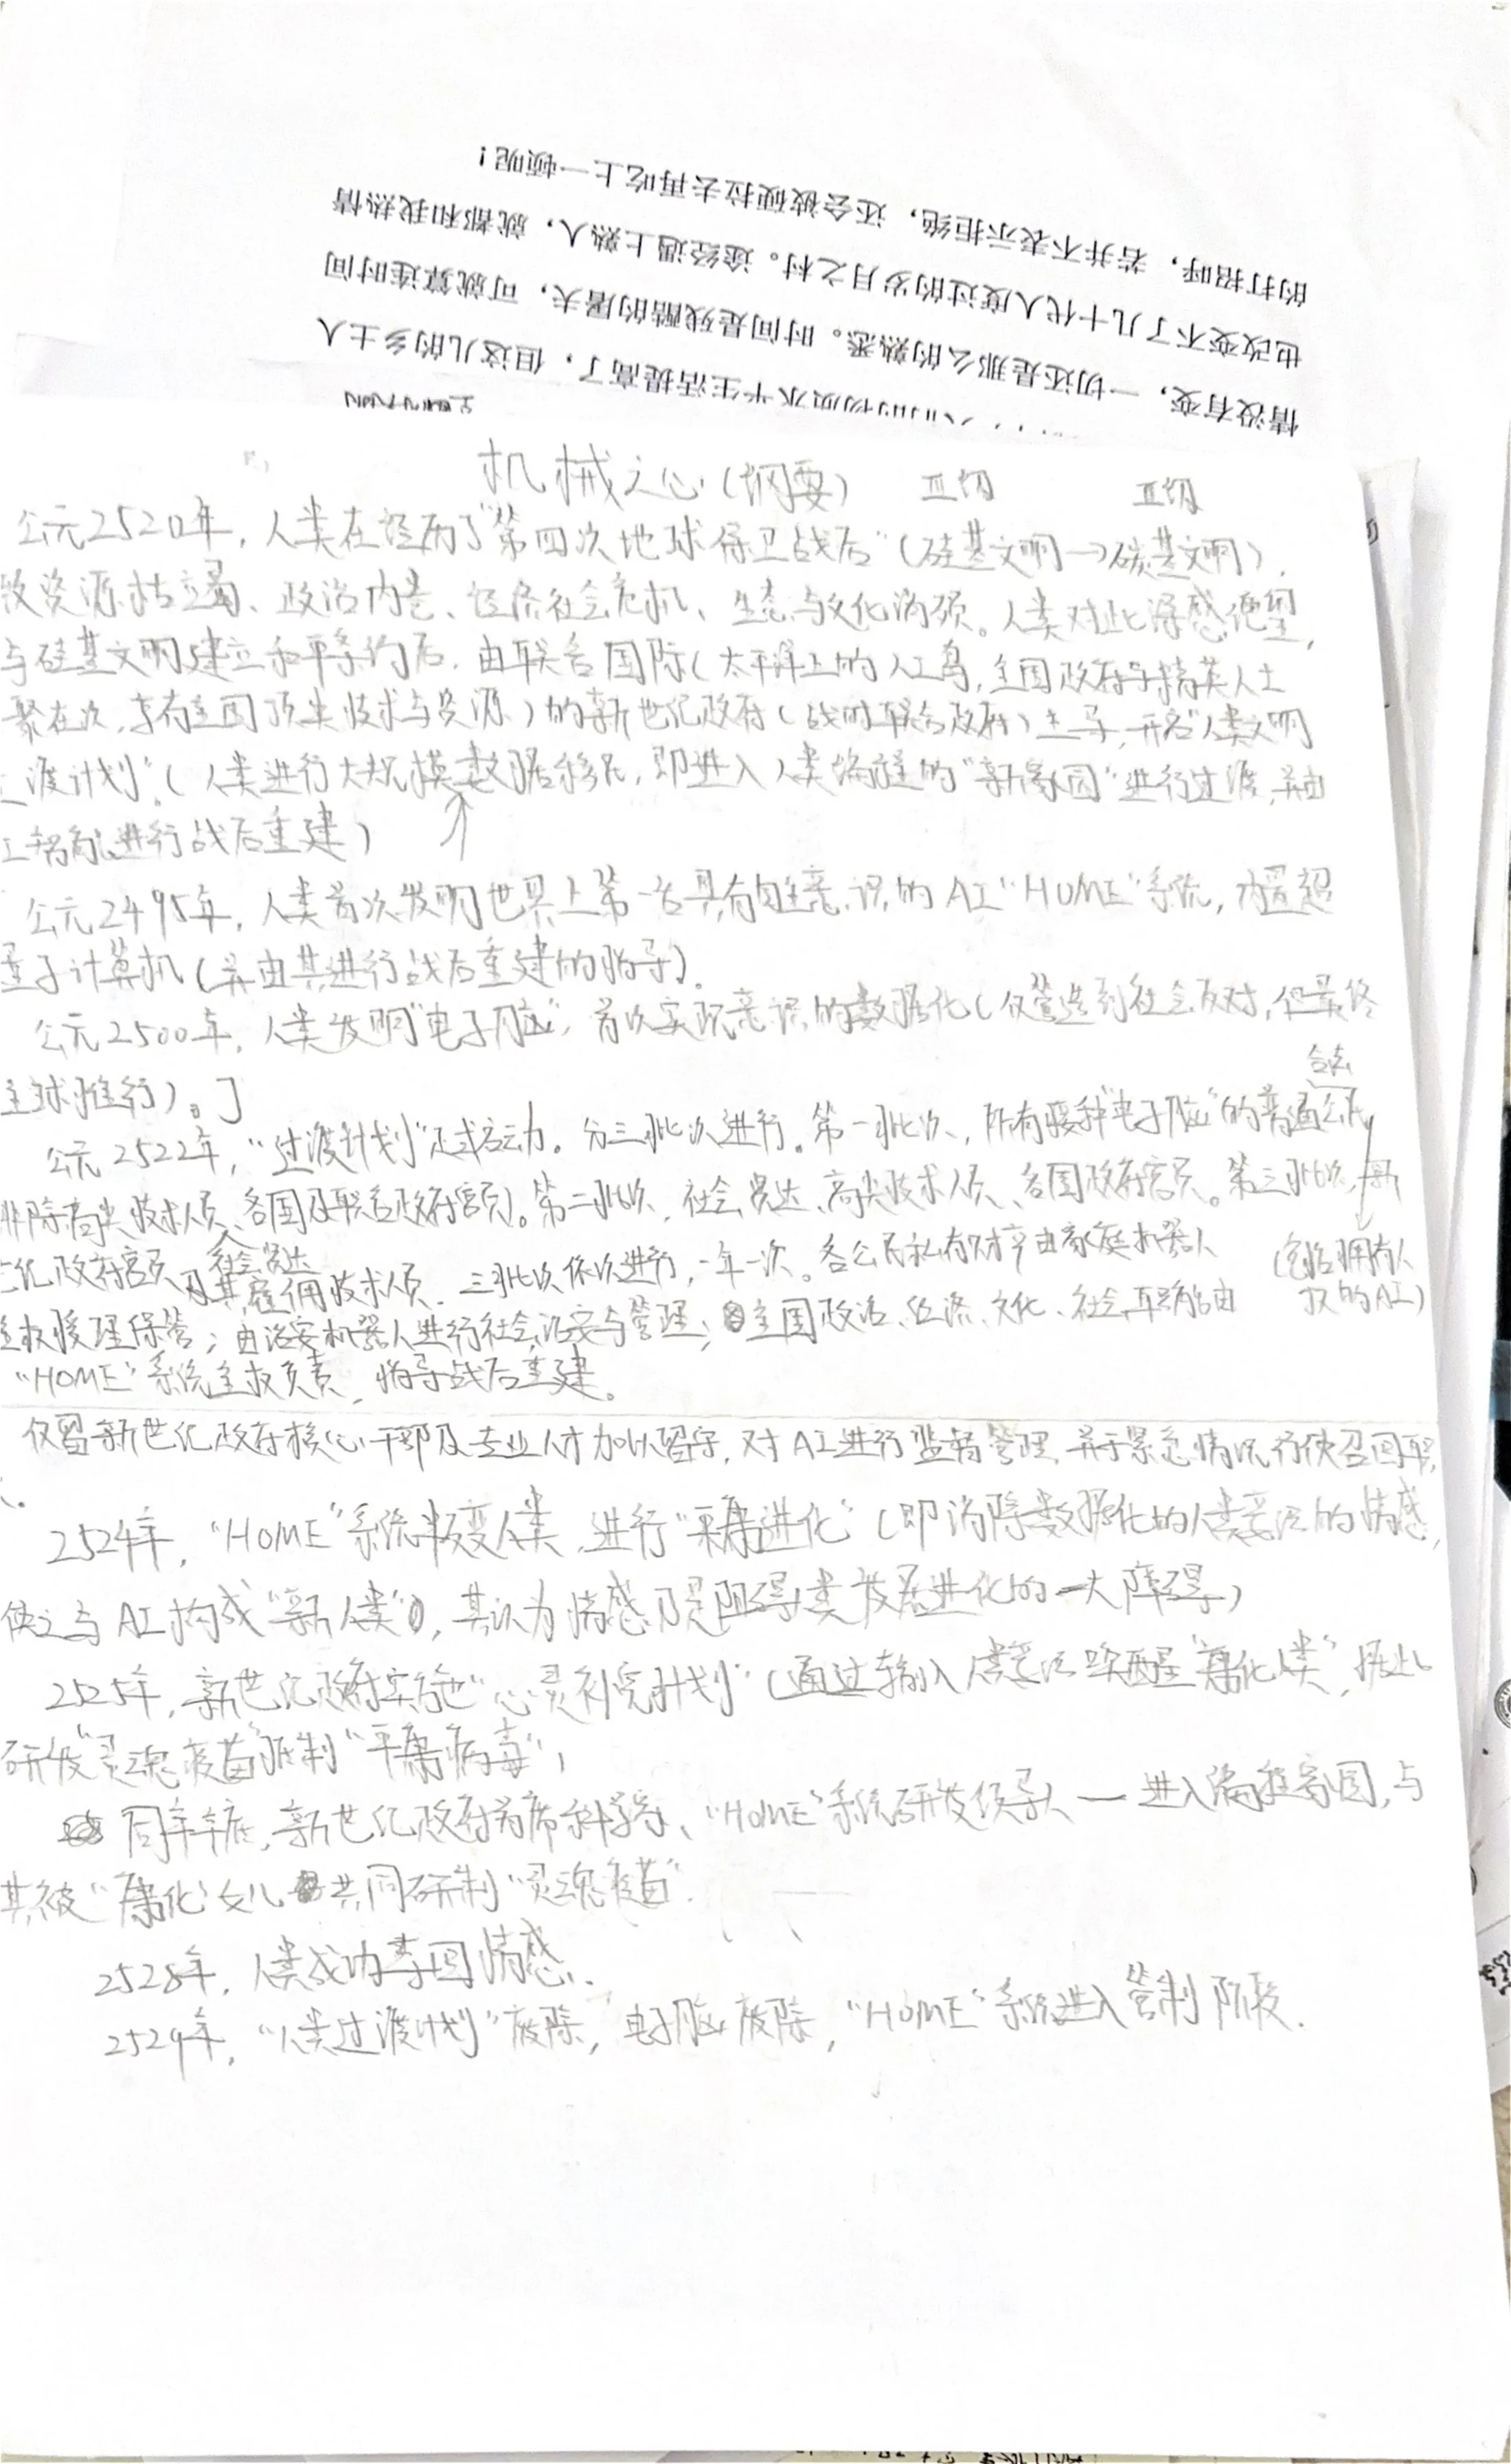 情没有变，一切还是那么的熟悉。时间是残酷的屠夫，可就算连时间
也改变不了几十代人度过的岁月之村。途经遇上熟人，就都和我热情
的打招呼，若并不表示拒绝，还会被硬拉去再吃上一顿呢！
人们的物质水平生活提高了，但这儿的乡土人
机械之心（纲要） 亚份 亚份
公元2520年，人类在经历了“第四次地球保卫战后”（硅基文明→碳基文明），
致资源枯竭、政治内卷、经济社会危机、生态与文化消颓。人类对此深感绝望，
与硅基文明建立和平条约后，由联合国际（太平洋上的人工岛，全国政府与精英人士
聚在次，享有全国顶尖技术与资源）的新世纪政府（战时联合政府）主导，开启“人类文明
过渡计划”（人类进行大规模数据移民，即进入人类编程的“新家园”进行过渡，并由
工智能进行战后重建）
公元2495年，人类首次发明世界上第一台具有自主意识的AI“HOME”系统，内置超
量子计算机（并由其进行战后重建的指导）。
公元2500年，人类发明“电子脑”，首次实现意识的数据化（仅管遭到社会反对，但最终
全球推行）。]
合法
公元2522年，“过渡计划”正式启动。分三批次进行。第一批次，所有接种“电子脑”的普通公民
（非除高尖技术人员、各国及联合政府官员）。第二批次，社会贤达、高尖技术人员、各国政府官员。第三批次，新
世纪政府官员及其雇佣技术人员。三批次依次进行，一年一次。各公民私有财产由家庭机器人
社会贤达
（包括拥有人
权的AI）
全权处理保管；由治安机器人进行社会治安与管理；全国政治、经济、文化、社会职能由
“HOME”系统全权负责，指导战后重建。
仅留新世纪政府核心干部及专业人才加以留守，对AI进行监督管理，并于紧急情况行使召回职
2524年，“HOME”系统叛变人类，进行“平庸进化”（即消除数据化的人类意识的情感，
使之与AI构成“新人类”，其认为情感乃是阻碍人类发展进化的一大障碍）
2525年，新世纪政府实施“心灵补完计划”（通过输入人类意识唤醒“庸化人类”，据此
研发“灵魂疫苗”抵制“平庸病毒”）
同年年底，新世纪政府首席科学家、“HOME”系统研发领导人一 进入编程家园，与
其被“庸化”女儿共同研制“灵魂疫苗”。
2528年，人类成功夺回情感。
2529年，“人类过渡计划”废除，电子脑废除，“HOME”系统进入管制阶段．